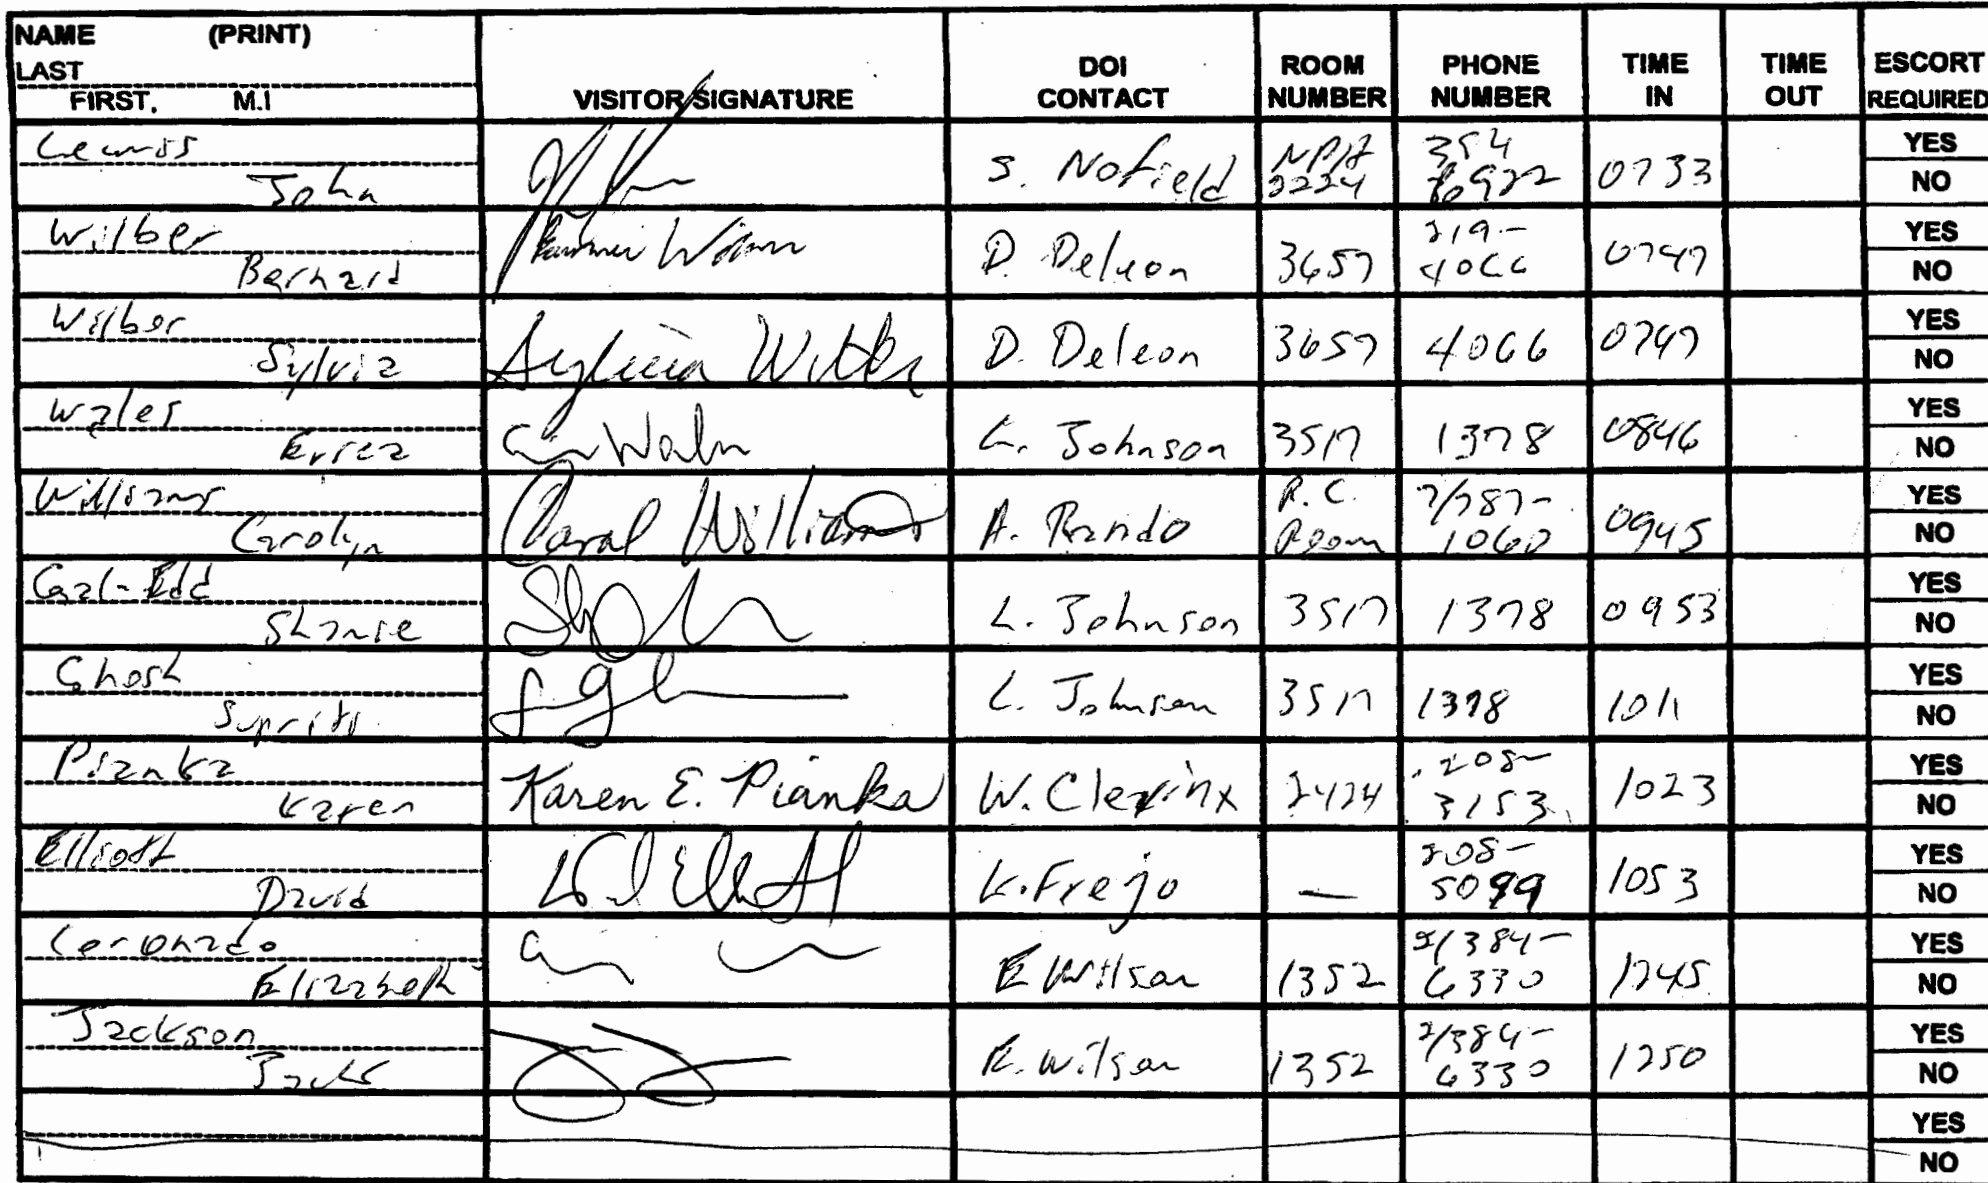 NAME (PRINT)
LAST
FIRST. M.I
VISITOR SIGNATURE
DOI CONTACT
ROOM NUMBER
PHONE NUMBER
TIME IN
TIME OUT
ESCORT REQUIRED
John
S. Nofield
0733
YES
NO
Wilber
Bernard
D. Deleon
3657
219-
4066
0747
YES
NO
Wilber
Sylvia
D. Deleon
3657
4066
0747
YES
NO
Wales
L. Johnson
3517
1378
0846
YES
NO
Williams
Carolyn
Carol Williams
A. Rando
R.C.
Room
1060
0945
YES
NO
L. Johnson
3517
1378
0953
YES
NO
Ghosh
L. Johnson
3517
1378
1011
YES
NO
Pianka
Karen
Karen E. Pianka
W. Clevinx
2424
208-
3153
1023
YES
NO
Elliott
David
K. Frejo
—
208-
5099
1053
YES
NO
Coronado
Elizabeth
E Wilson
1352
2/384-
6330
1245
YES
NO
Jackson
E. Wilson
1352
2/384-
6330
1250
YES
NO
YES
NO